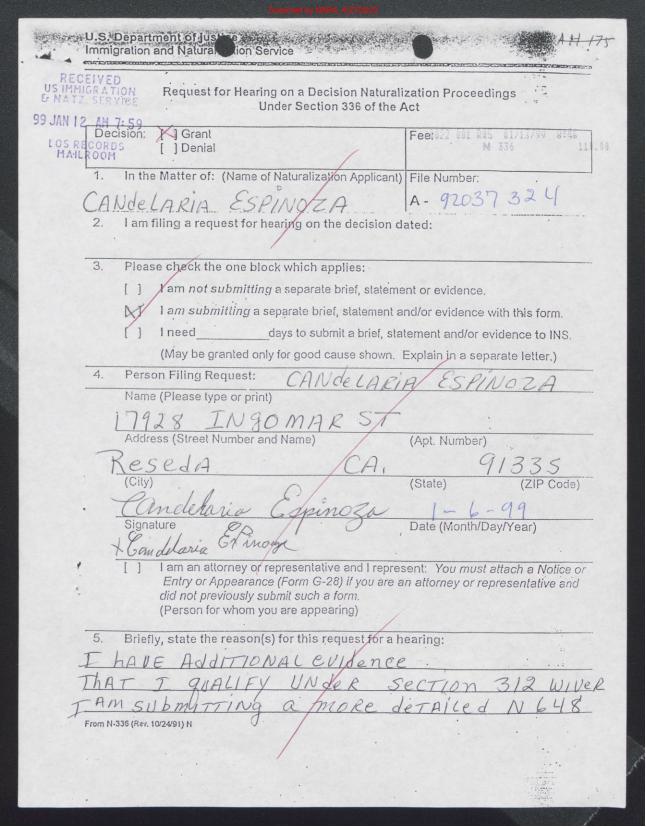 AH 175
U.S. Department of Justice
Immigration and Naturalization Service
RECEIVED
US IMMIGRATION
& NATZ. SERVICE
99 JAN 12 AM 7:59
LOS RECORDS
MAILROOM
Request for Hearing on a Decision Naturalization Proceedings
Under Section 336 of the Act
Decision: [X] Grant
[ ] Denial
Fee: 01/13/99
N 336
1. In the Matter of: (Name of Naturalization Applicant)
CANdeLARIA ESPINOZA
File Number:
A - 92037 324
2. I am filing a request for hearing on the decision dated:
3. Please check the one block which applies:
[ ] I am not submitting a separate brief, statement or evidence.
[X] I am submitting a separate brief, statement and/or evidence with this form.
[ ] I need__________days to submit a brief, statement and/or evidence to INS.
(May be granted only for good cause shown. Explain in a separate letter.)
4. Person Filing Request: CANdeLARIA ESPINOZA
Name (Please type or print)
17928 INGOMAR ST
Address (Street Number and Name) (Apt. Number)
ReSedA CA. 91335
(City) (State) (ZIP Code)
Candelaria Espinoza 1-6-99
Signature Date (Month/Day/Year)
x Candelaria Espinoza
[ ] I am an attorney or representative and I represent: You must attach a Notice or
Entry or Appearance (Form G-28) if you are an attorney or representative and
did not previously submit such a form.
(Person for whom you are appearing)
5. Briefly, state the reason(s) for this request for a hearing:
I hAVE AddITIONAL evidence
ThAT I quALIFY UNdeR SecTIon 312 WIVeR
I AM SUbmITTINg a more deTAIled N 648
From N-336 (Rev. 10/24/91) N